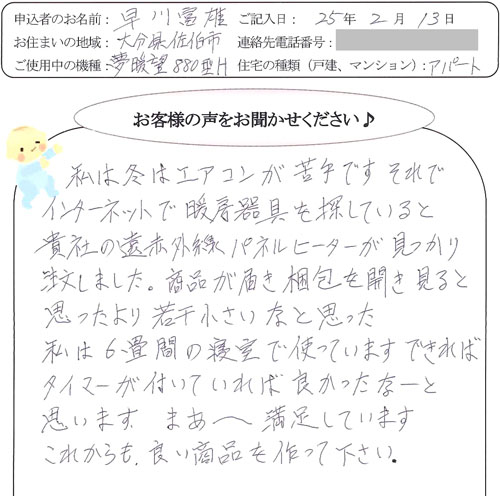 申込者のお名前：早川富雄 ご記入日：25年2月13日
お住まいの地域：大分県佐伯市 連絡先電話番号：
ご使用中の機種：夢暖望880型H 住宅の種類（戸建、マンション）：アパート
お客様の声をお聞かせください♪
私は冬はエアコンが苦手です それで
インターネットで暖房器具を探していると
貴社の遠赤外線パネルヒーターが見つかり
注文しました。商品が届き梱包を開き見ると
思ったより若干小さいなと思った
私は6畳間の寝室で使っています できれば
タイマーが付いていれば良かったなーと
思います まあ〜満足しています
これからも、良い商品を作って下さい。